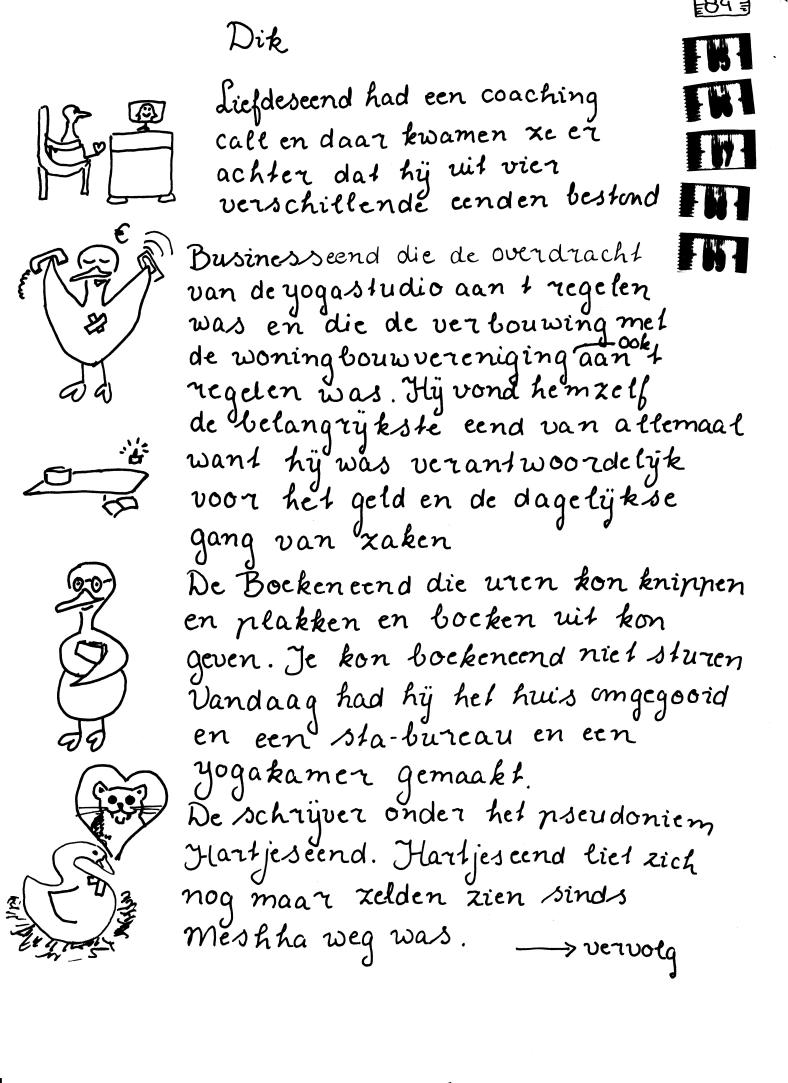 89
Dik
85
88
87
88
85
Liefdeseend had een coaching
call en daar kwamen ze er
achter dat hij uit vier
verschillende eenden bestond
€
Businesseend die de overdracht
van de yogastudio aan t regelen
was en die de verbouwing met
de woningbouwvereniging ook aan t
regelen was. Hij vond hemzelf
de belangrijkste eend van allemaal
want hij was verantwoordelijk
voor het geld en de dagelijkse
gang van zaken
De Boekeneend die uren kon knippen
en plakken en boeken uit kon
geven. Je kon boekeneend niet sturen
Vandaag had hij het huis omgegooid
en een sta-bureau en een
yogakamer gemaakt.
De schrijver onder het pseudoniem
Hartjeseend. Hartjeseend liet zich
nog maar zelden zien sinds
Meshha weg was.
→ vervolg